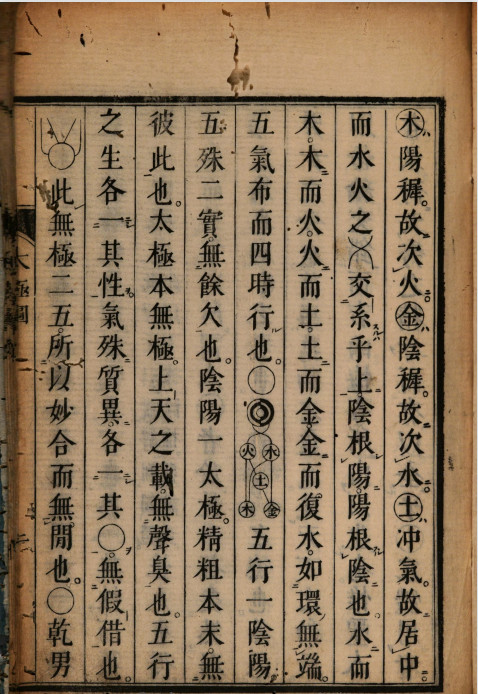 ㊍陽穉。故次火。㊎陰穉。故次水。㊏冲氣。故居中。
而水火之交系乎上陰根陽。陽根陰也。水而
木。木而火。火而土。土而金。金而復水。如環無端。
五氣布而四時行也。○◎火水土木金五行一陰陽
五殊二實無餘欠也。陰陽一太極。精粗本末。無
彼此也。太極本無極。上天之載。無聲臭也。五行
之生各一其性。氣殊質異。各一其○。無假借也。
○此無極二五。所以妙合而無閒也。○乾男
太極圖